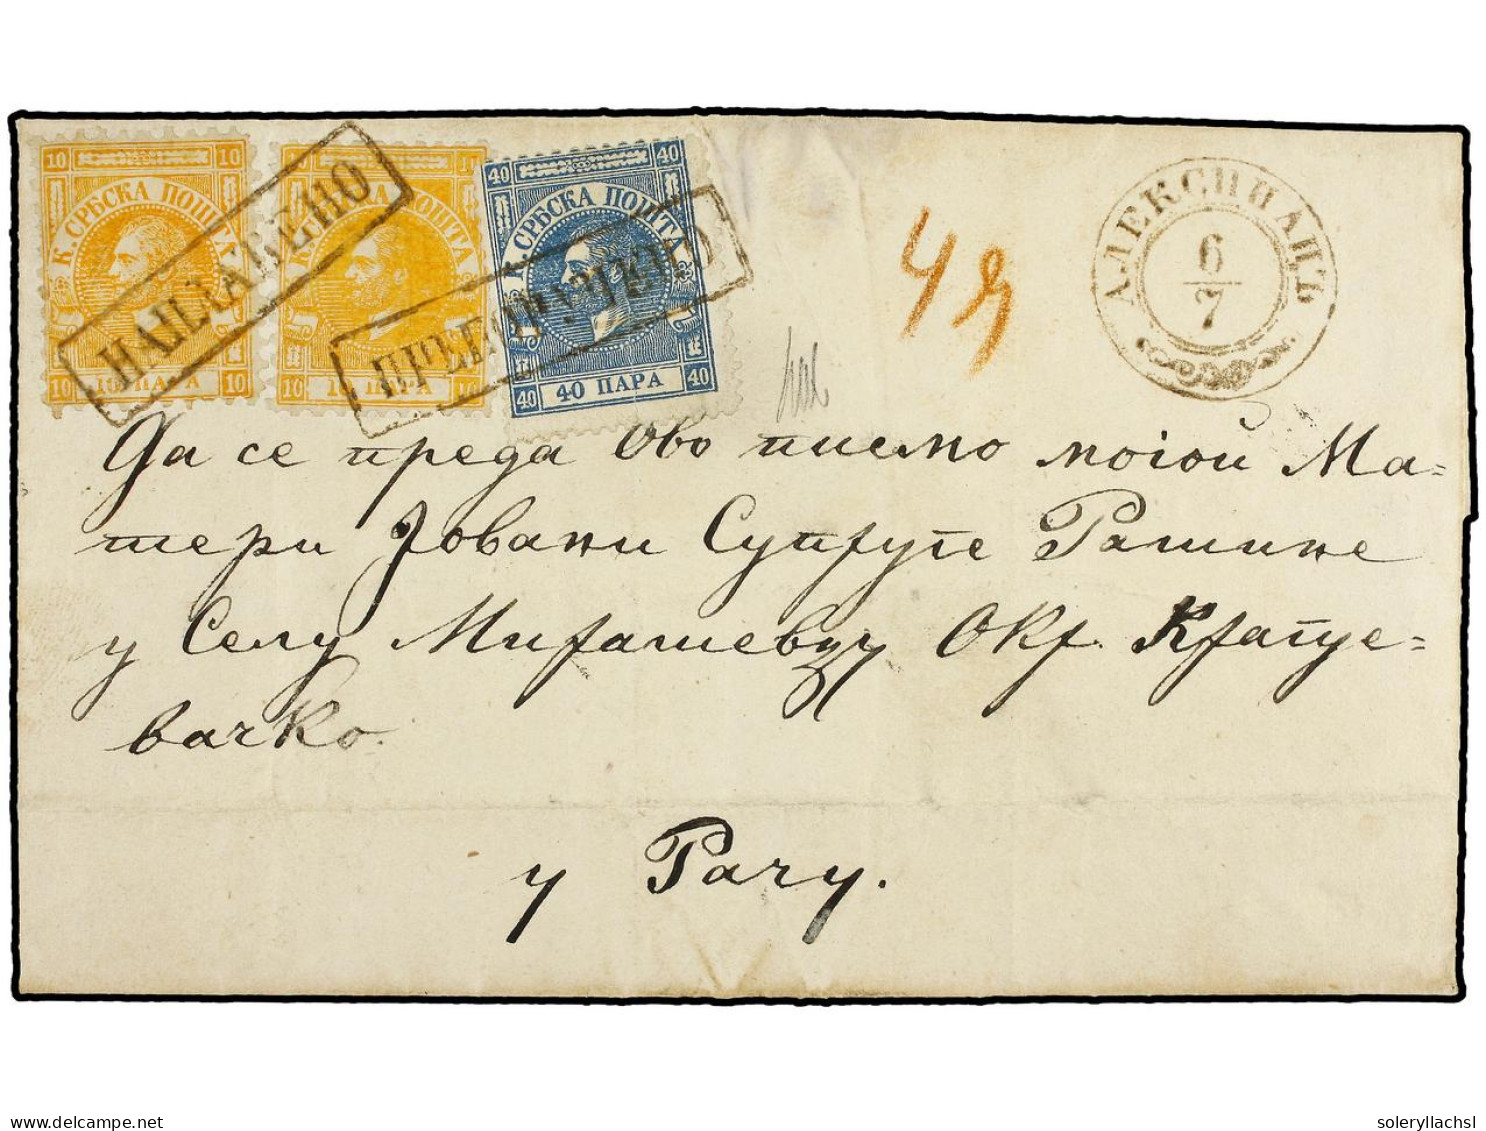 10 10
К. СРБСКА ПОШТА
НАПЛАЋЕНО
10 10 ПАРА 10
10
К. СРБСКА ПОШТА
10 10 ПАРА 10
40 40
К. СРБСКА ПОШТА
ПРЕПОРУЧЕНО
40 40 ПАРА 40
АЛЕКСИНАЦЪ
6
7
Да се преда Ово писмо мојой Ма=
тери Јовани Супруге Рашине
у Селу Мирашевцу Окр. Крагуе=
вачко.
у Рачу.
delcampe.net
soleryllachsl